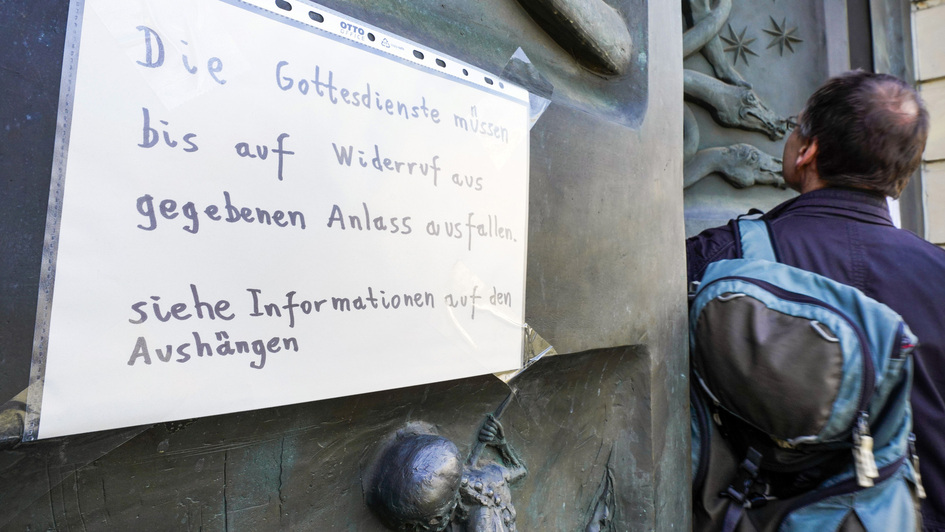 OTTO
OFFICE
Die Gottesdienste müssen
bis auf Widerruf aus
gegebenen Anlass ausfallen.
siehe Informationen auf den
Aushängen